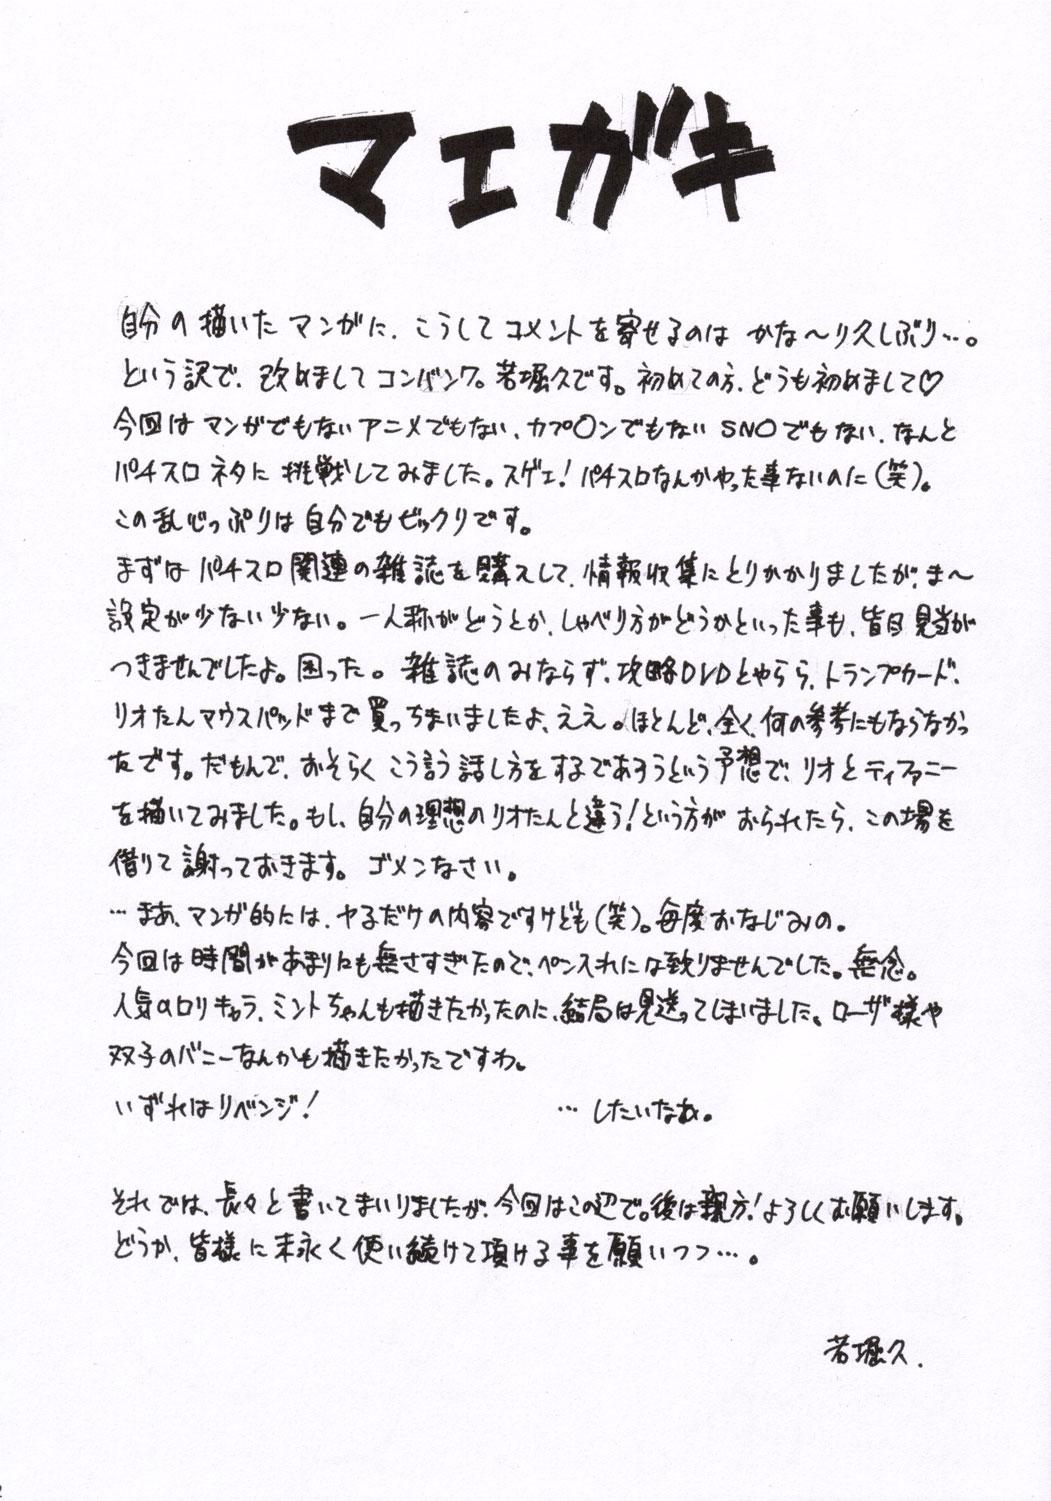 マエガキ
自分の描いたマンガに、こうしてコメントを寄せるのは かな〜り久しぶり…。
という訳で、改めましてコンバンワ。若堀久です。初めての方、どうも初めまして♡
今回は マンガでもないアニメでもない、カプ〇ンでもない SN〇でもない、なんと
パチスロ ネタに 挑戦してみました。スゲェ!パチスロなんかやった事ないのに(笑)。
この乱心っぷりは 自分でもビックリです。
まずは パチスロ関連の雑誌を購入して、情報収集にとりかかりましたが、ま〜
設定が少ない少ない。一人称がどうとか、しゃべり方がどうかといった事も、皆目見当が
つきませんでしたよ。困った。雑誌のみならず、攻略DVDとやらら、トランプカード、
リオたんマウスパッドまで買っちまいましたよ、ええ。ほとんど、全く、何の参考にもならなかっ
たです。だもんで、おそらく こう言う 話し方をするであろうという予想で、リオとティファニー
を描いてみました。もし、自分の理想のリオたんと違う!という方が おられたら、この場を
借りて 謝っておきます。ゴメンなさい。
…まあ、マンガ的には、ヤるだけの内容ですけども(笑)。毎度おなじみの。
今回は時間があまりにも無さすぎたので、ペン入れには致りませんでした。無念。
人気のロリキャラ、ミントちゃんも描きたかったのに、結局は見送ってしまいました。ローザ様や
双子のバニーなんかも描きたかったですわ。
いずれはリベンジ! …したいなぁ。
それでは、長々と書いてまいりましたが、今回はこの辺で。後は親方!よろしくお願いします。
どうか、皆様に末永く使い続けて頂ける事を願いつつ…。
若堀久.
2